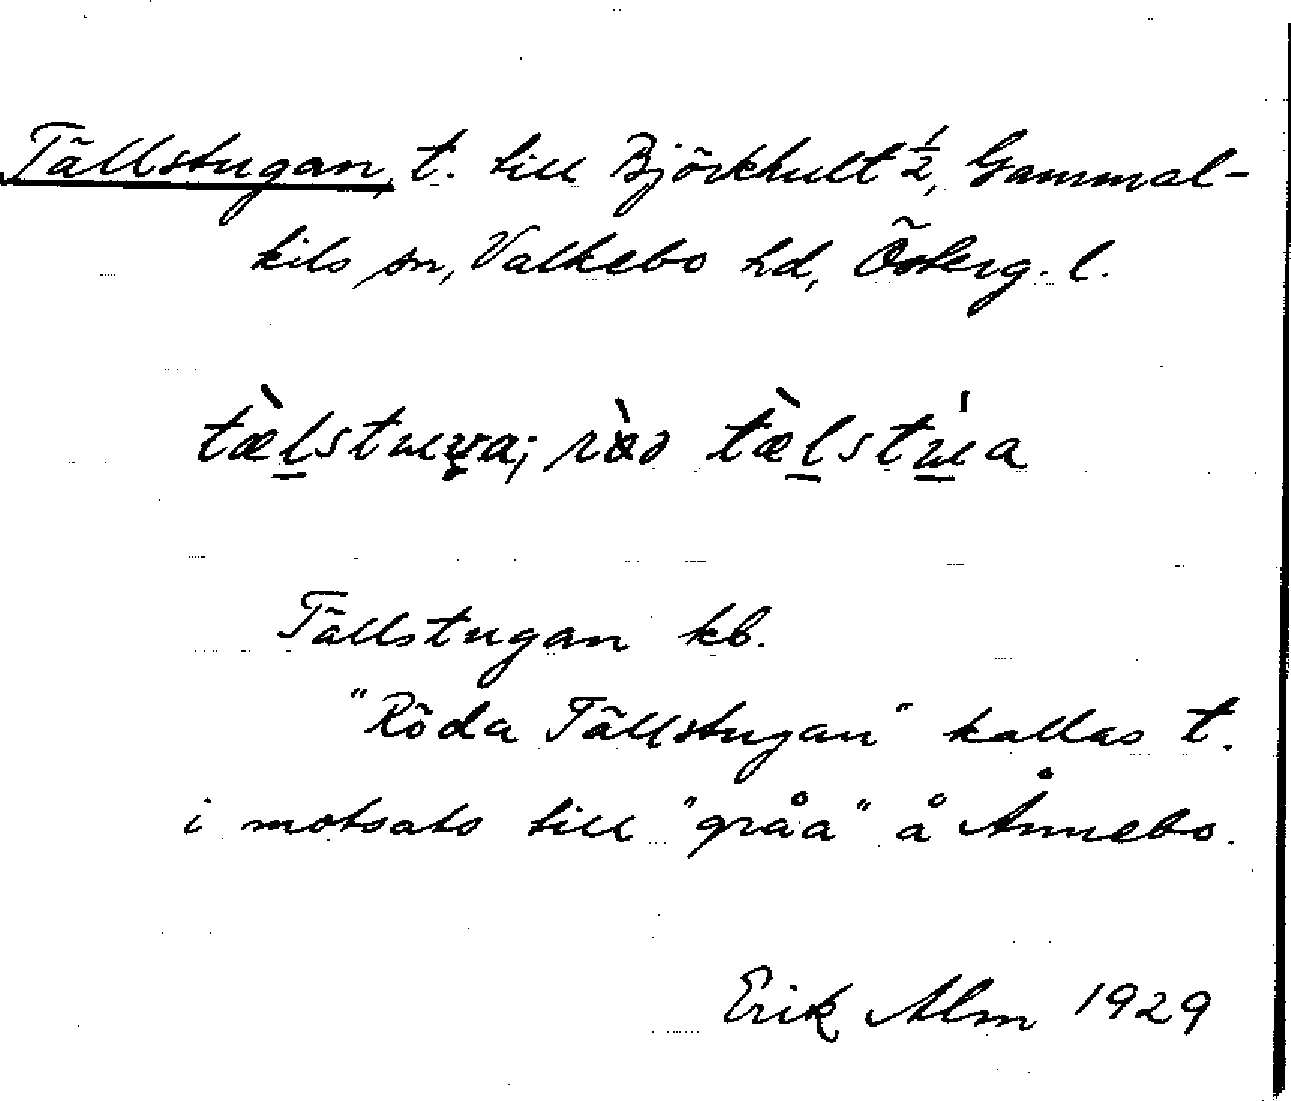 Tällstugan, t. till Björkhult ½, Gammal-
kils sn, Valkebo hd, Österg. l.
tæ̀l̠stuɣa; rö̀ə tæ̀l̠stu̠̍a
Tällstugan kb.
"Röda Tällstugan" kallas t.
i motsats till "gråa" å Ånnebo.
Erik Alm 1929